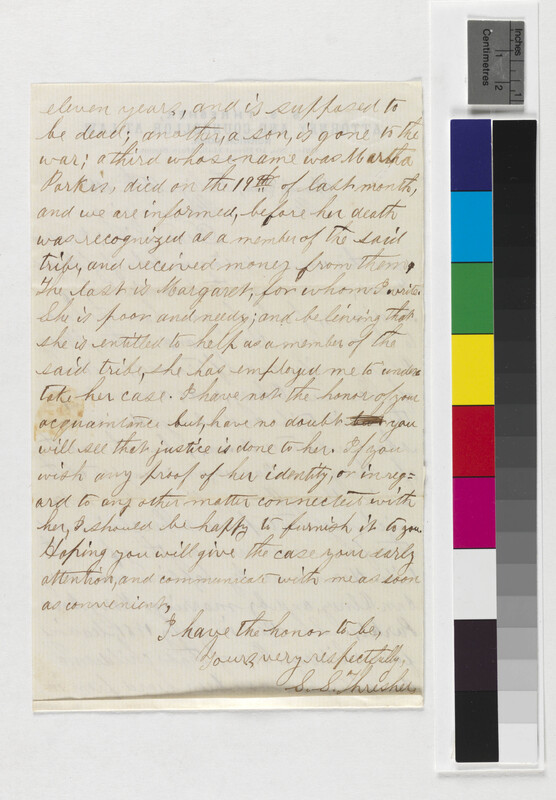 eleven years, and is supposed to
be dead; another, a son, is gone to the
war; a third whose name was Martha
Parkis, died on the 19th of last month,
and we are informed, before her death
was recognized as a member of the said
tribe, and received money from them.
The last is Margaret, for whom I write.
She is poor and needy; and believing that
she is entitled to help as a member of the
said tribe, she has employed me to under
take her case. I have not the honor of your
acquaintance but, have no doubt you
will see that justice is done to her. If you
wish any proof of her identity, or in reg=
ard to any other matter connected with
her, I should be happy to furnish it to you
Hoping you will give the case your early
attention, and communicate with me as soon
as convenient,
I have the honor to be,
Yours very respectfully,
S. S. Thresher.
Inches
1
Centimetres
1
2